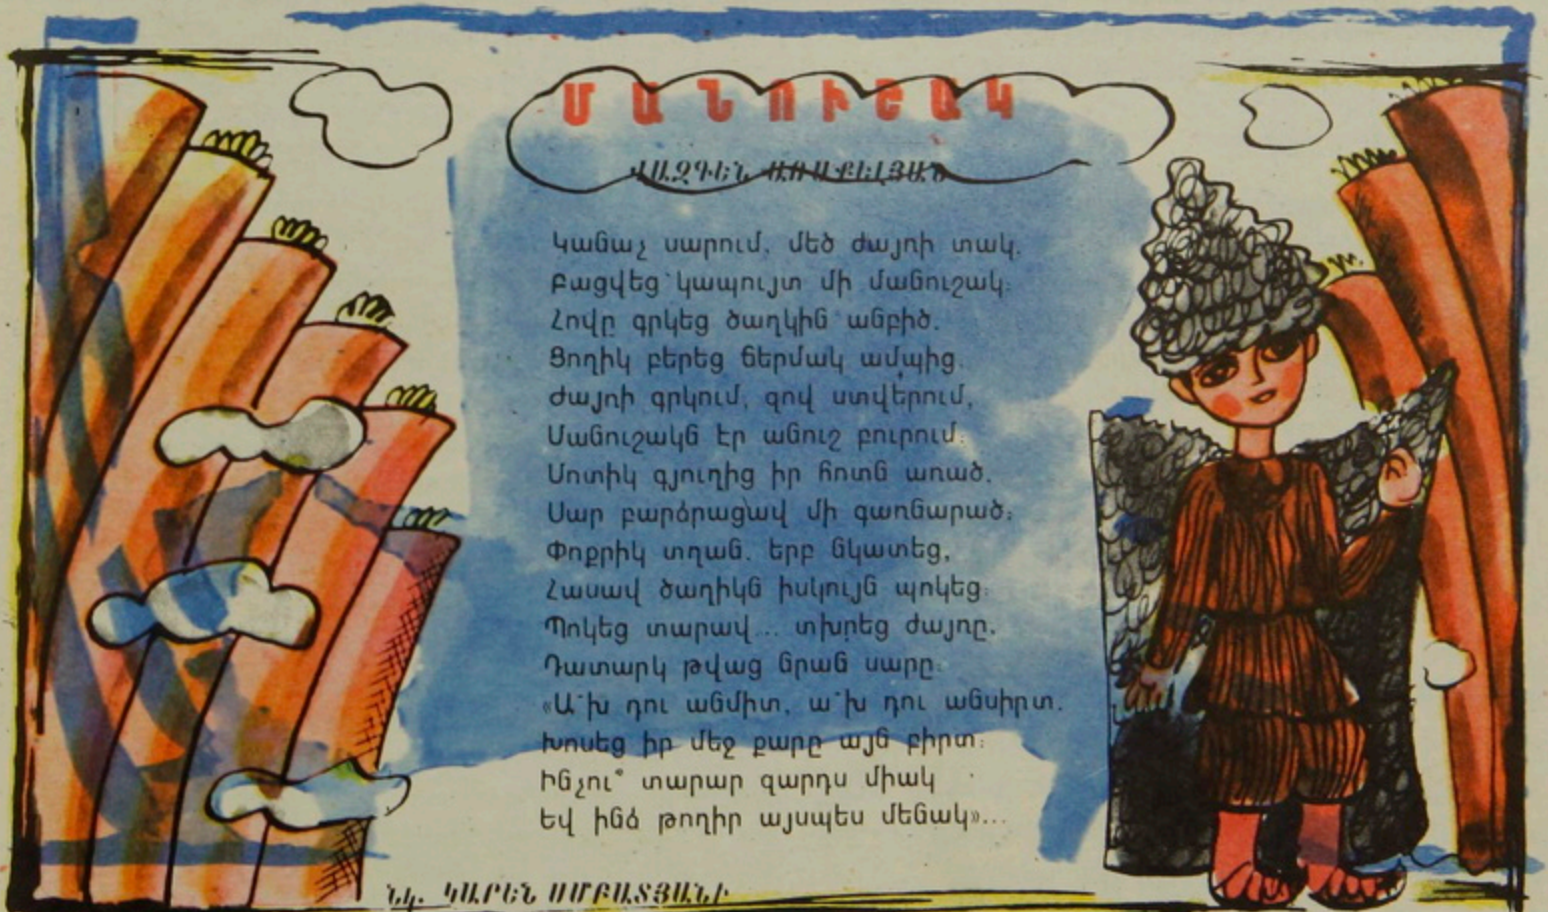 ՄԱՆՈՒՇԱԿ
ՎԱԶԳԵՆ ԱՌԱՔԵԼՅԱՆ
Կանաչ սարում, մեծ ժայռի տակ,
Բացվեց կապույտ մի մանուշակ:
Հովը գրկեց ծաղկին անբիծ,
Ցողիկ բերեց ճերմակ ամպից.
Ժայռի գրկում, զով ստվերում,
Մանուշակն էր անուշ բուրում:
Մոտիկ գյուղից իր հոտն առած,
Սար բարձրացավ մի գառնարած:
Փոքրիկ տղան, երբ նկատեց,
Հասավ ծաղիկն իսկույն պոկեց:
Պոկեց տարավ... տխրեց ժայռը,
Դատարկ թվաց նրան սարը:
«Ա՜խ դու անմիտ, ա՜խ դու անսիրտ,
Խոսեց իր մեջ քարը այն բիրտ:
Ինչու՞ տարար զարդս միակ
Եվ ինձ թողիր այսպես մենակ»...
ՆԿ. ԿԱՐԵՆ ՍՄԲԱՏՅԱՆԻ